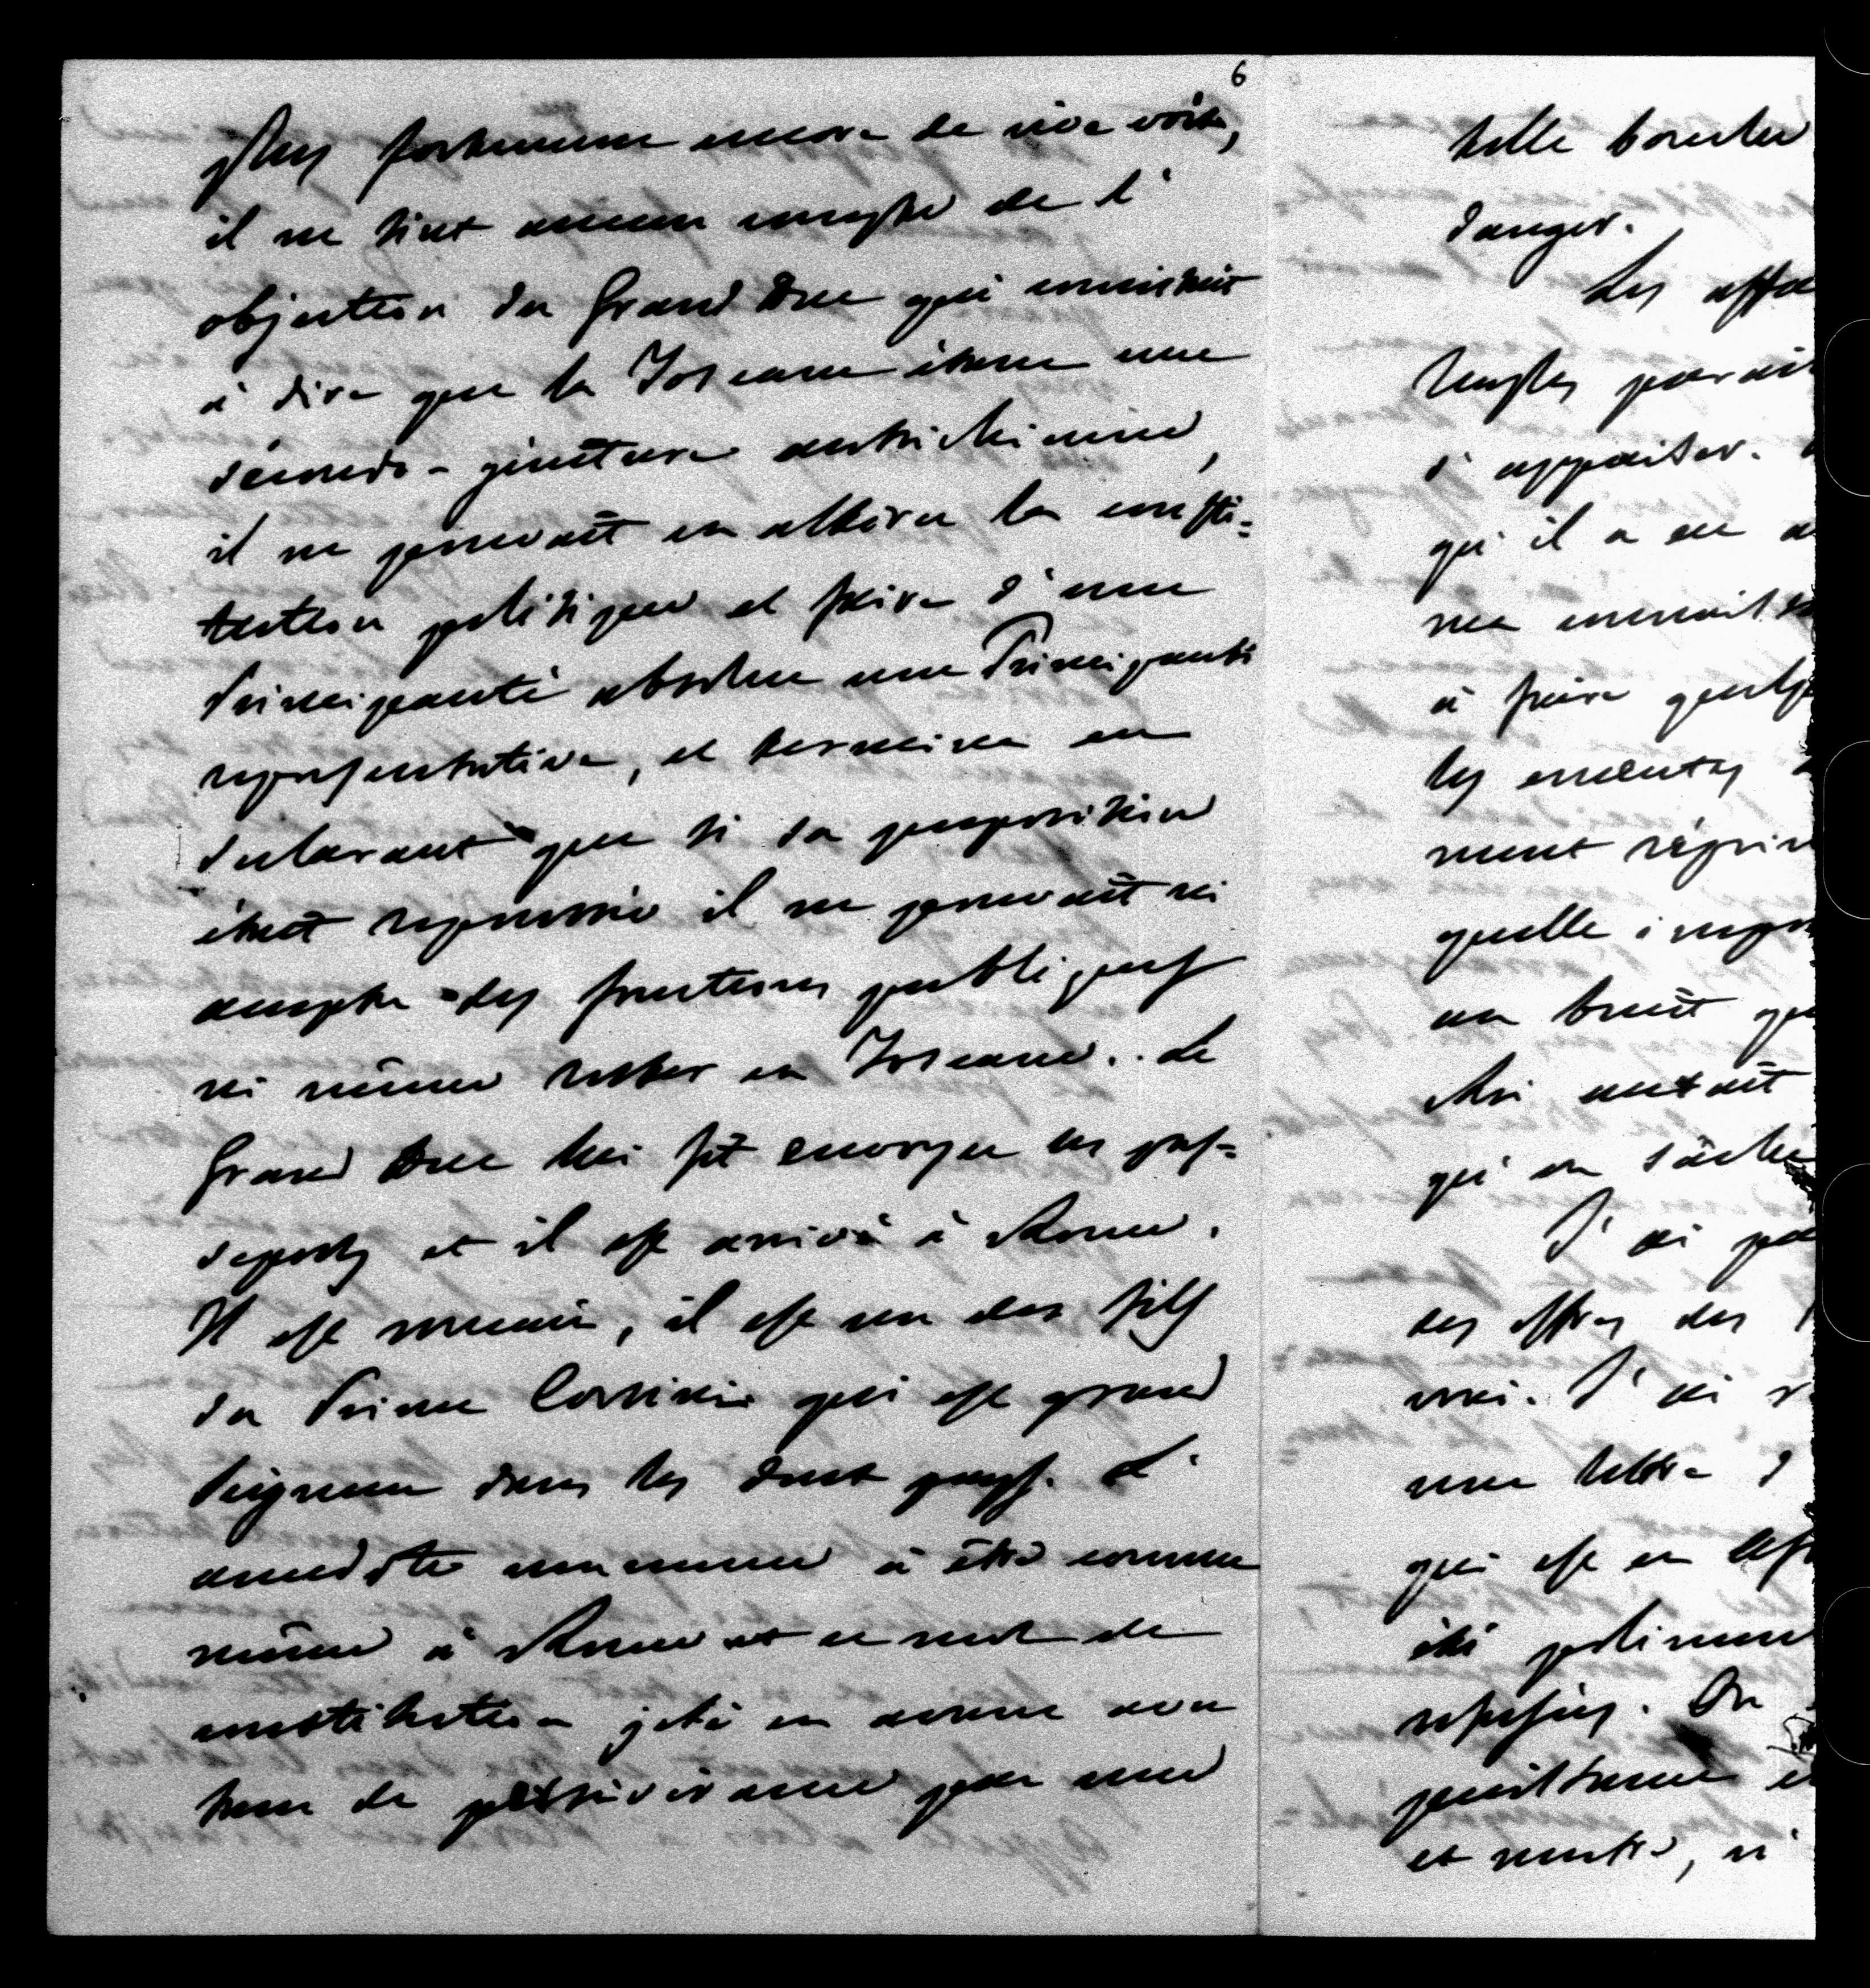 6
plus fortement encore de vive voix,
il ne tint aucun compte de l'
objection du Grand Duc qui consistait
à dire que la Toscane étant une
secundo-giniture autrichienne,
il ne pouvait en altérer la consti=
tution politique et faire d'une
Principauté absolue une Principauté
représentative, et termina en
déclarant que si sa proposition
était repoussée il ne pouvait ni
accepter des fonctions publiques
ni même rester en Toscane. Le
Grand Duc lui fit envoyer ses pas=
seports et il est arrivé à Rome.
Il est romain, il est un des fils
du Prince Corsini qui est grand
Seigneur dans les deux pays. L'
anecdote commence à être connue
même à Rome et ce mot de
constitution jeté en avant avec
tant de persévérance par une
telle bouche
danger.
Les affa
Naples parai
s'appaiser.
qu'il a eu
me connait
à faire quelq
les émeutes
ment réprim
quelle impor
au bruit que
Roi aurait
qu'on tâche
J'ai
des offres des
vrai. J'ai
une lettre d
qui est en
été poliment
refusées. On
et
et